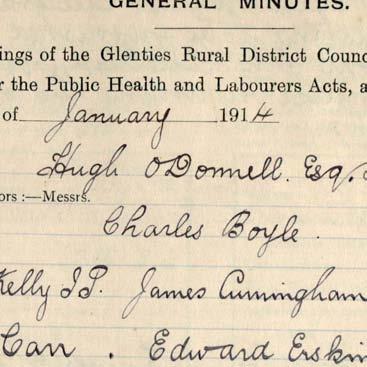 GENERAL MINUTES.
ings of the Glenties Rural District Counc
r the Public Health and Labourers Acts, a
of January 1914
Hugh O'Donnell. Esq.
ors :—Messrs.
Charles Boyle.
Kelly J.P. James Cunningham
Carr. Edward Erskin